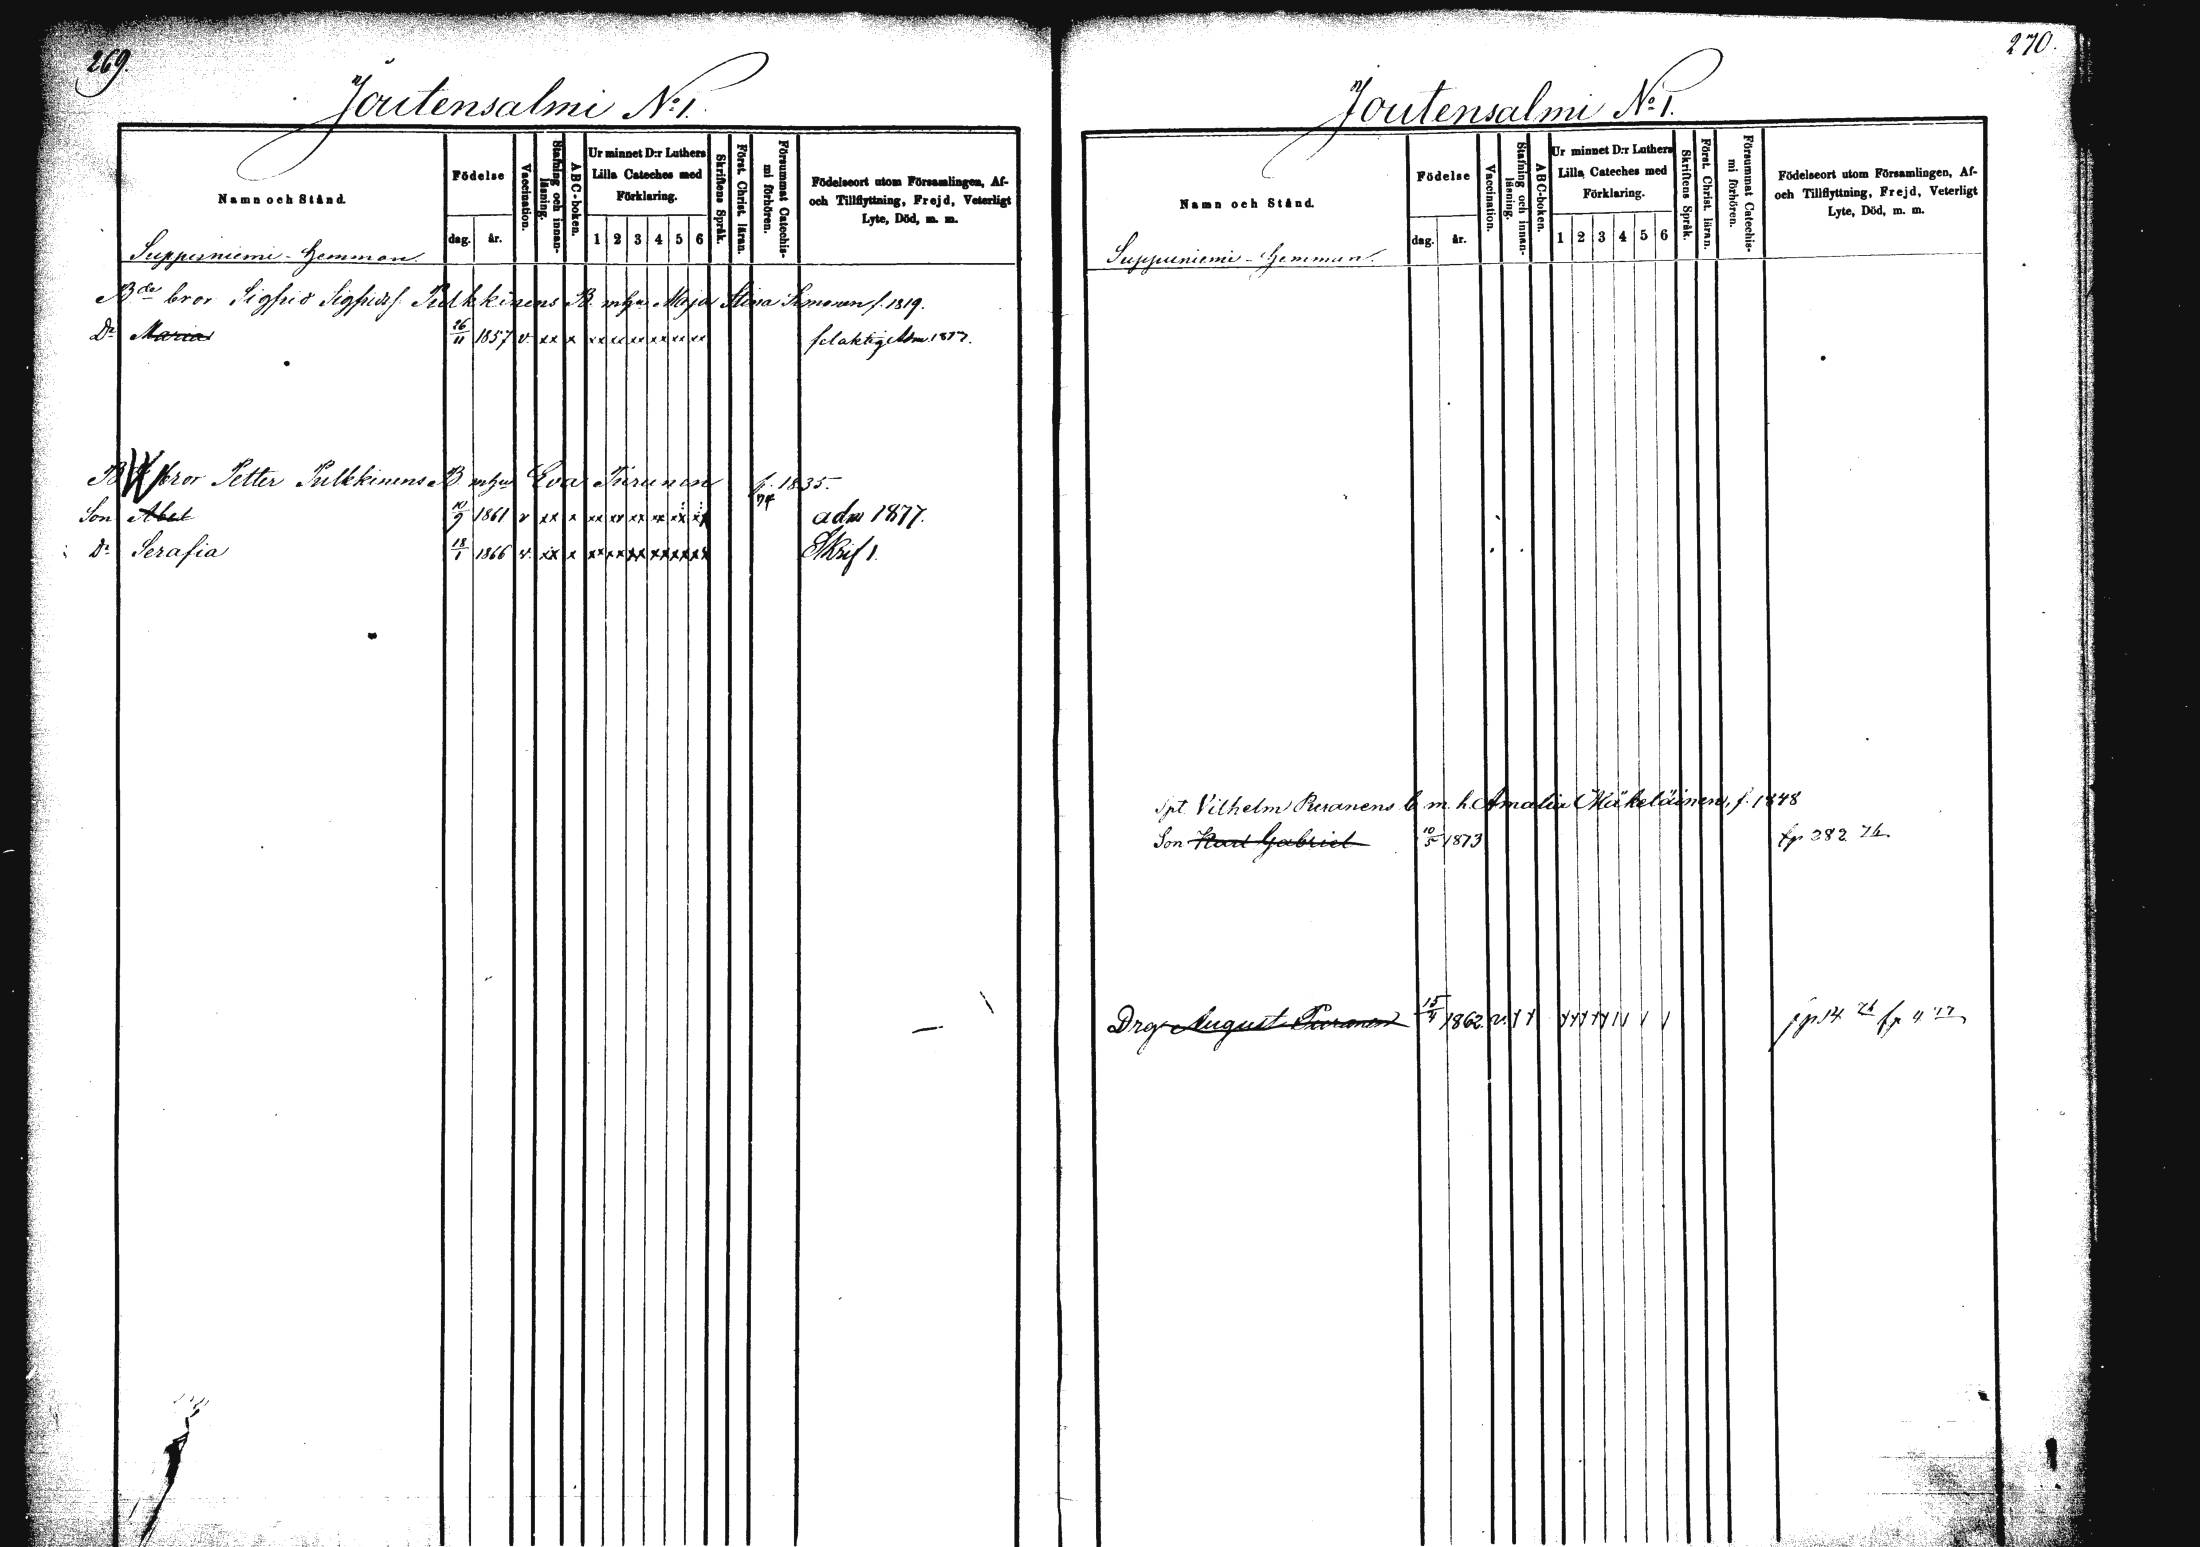 269.
Joutensalmi No 1.
Namn och Stånd.
Födelse
dag.
år.
Vaccination.
Stafning och innan-läsning.
ABC-boken.
Ur minnet D:r Luthers Lilla Cateches med Förklaring.
1 2 3 4 5 6
Skriftens Språk.
Först. Christ. läran.
Försummat Catechis-mi förhören.
Födelseort utom Församlingen, Af-
och Tillflyttning, Frejd, Veterligt
Lyte, Död, m. m.
Suppiniemi - Hemman
Bde bror Sigfrid Sigfridss. Pulkkinens B. m hu Maja Stina Simonen f. 1819.
Dr Maria 26/11 1857 v xx x xx xx xx xx xx xx felaktig Adm. 1877.
bror Petter Pulkkinens B m hu Eva Turunen f. 1835.
Son Abel 10/9 1861 v xx x xx xx xx xx xx xx 74 adm 1877.
Dr Serafia 18/1 1866 v. xx x xx xx xx xx xx xx Skrif 1.
270.
Joutensalmi No 1.
Namn och Stånd.
Födelse
dag.
år.
Vaccination.
Stafning och innan-läsning.
ABC-boken.
Ur minnet D:r Luthers Lilla Cateches med Förklaring.
1 2 3 4 5 6
Skriftens Språk.
Först. Christ. läran.
Försummat Catechis-mi förhören.
Födelseort utom Församlingen, Af-
och Tillflyttning, Frejd, Veterligt
Lyte, Död, m. m.
Suppiniemi - Hemman.
Spt. Vilhelm Puranens b m. h. Amalia Mäkeläinen, f. 1848
Son Karl Gabriel 10/5 1873 fp 382 76.
Drg August Turanen 15/4 1862 v. fp 14 76 fp 4 77